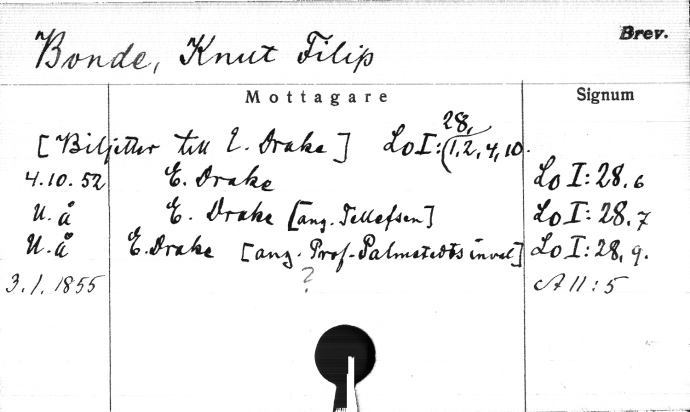 Brev.
Bonde, Knut Filip
Mottagare Signum
[Biljetter till E. Drake] Lo I: 28, (1, 2, 4, 10.
4.10.52 E. Drake Lo I: 28, 6
U. å E. Drake [ang. Tellefsen] Lo I: 28, 7
U. å E. Drake [ang. Prof. Palmstedts inval] Lo I: 28, 9.
3.1.1855 ? A II : 5